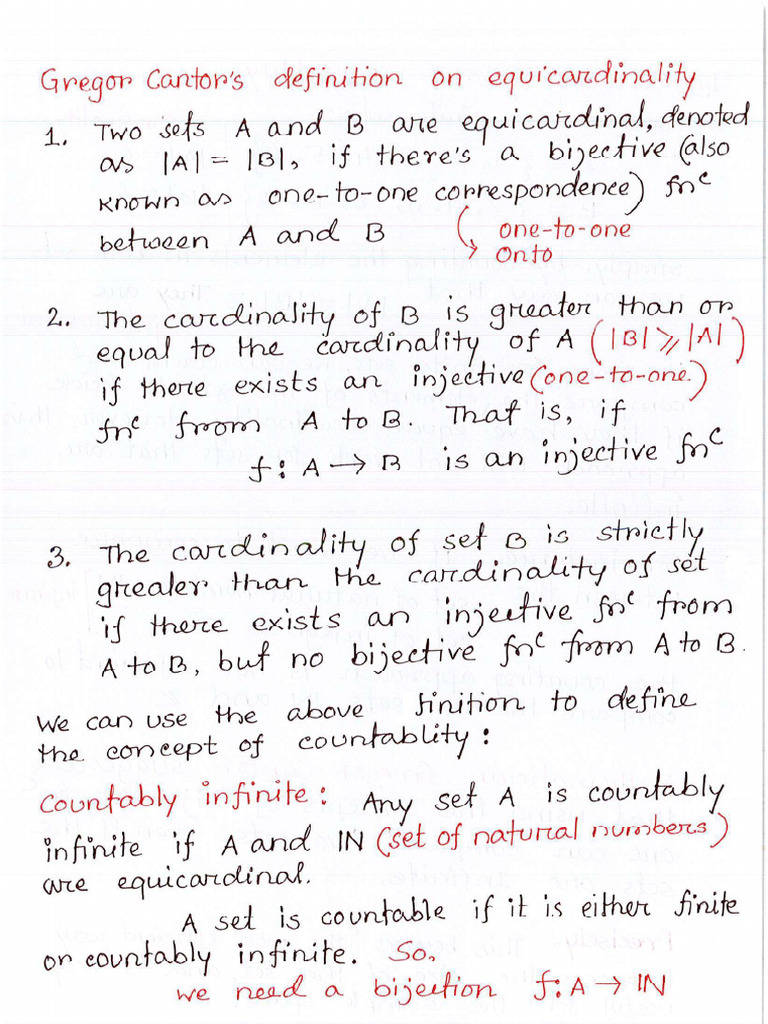 Gregor Cantor's definition on equicardinality
1. Two sets A and B are equicardinal, denoted
as |A| = |B|, if there's a bijective (also
known as one-to-one correspondence) fnᶜ
between A and B one-to-one
onto
2. The cardinality of B is greater than or
equal to the cardinality of A (|B| ⩾ |A|)
if there exists an injective (one-to-one)
fnᶜ from A to B. That is, if
f: A → B is an injective fnᶜ
3. The cardinality of set B is strictly
greater than the cardinality of set
if there exists an injective fnᶜ from
A to B, but no bijective fnᶜ from A to B.
We can use the above finition to define
the concept of countablity:
Countably infinite: Any set A is countably
infinite if A and IN (set of natural numbers)
are equicardinal.
A set is countable if it is either finite
or countably infinite. So,
we need a bijection f: A → IN